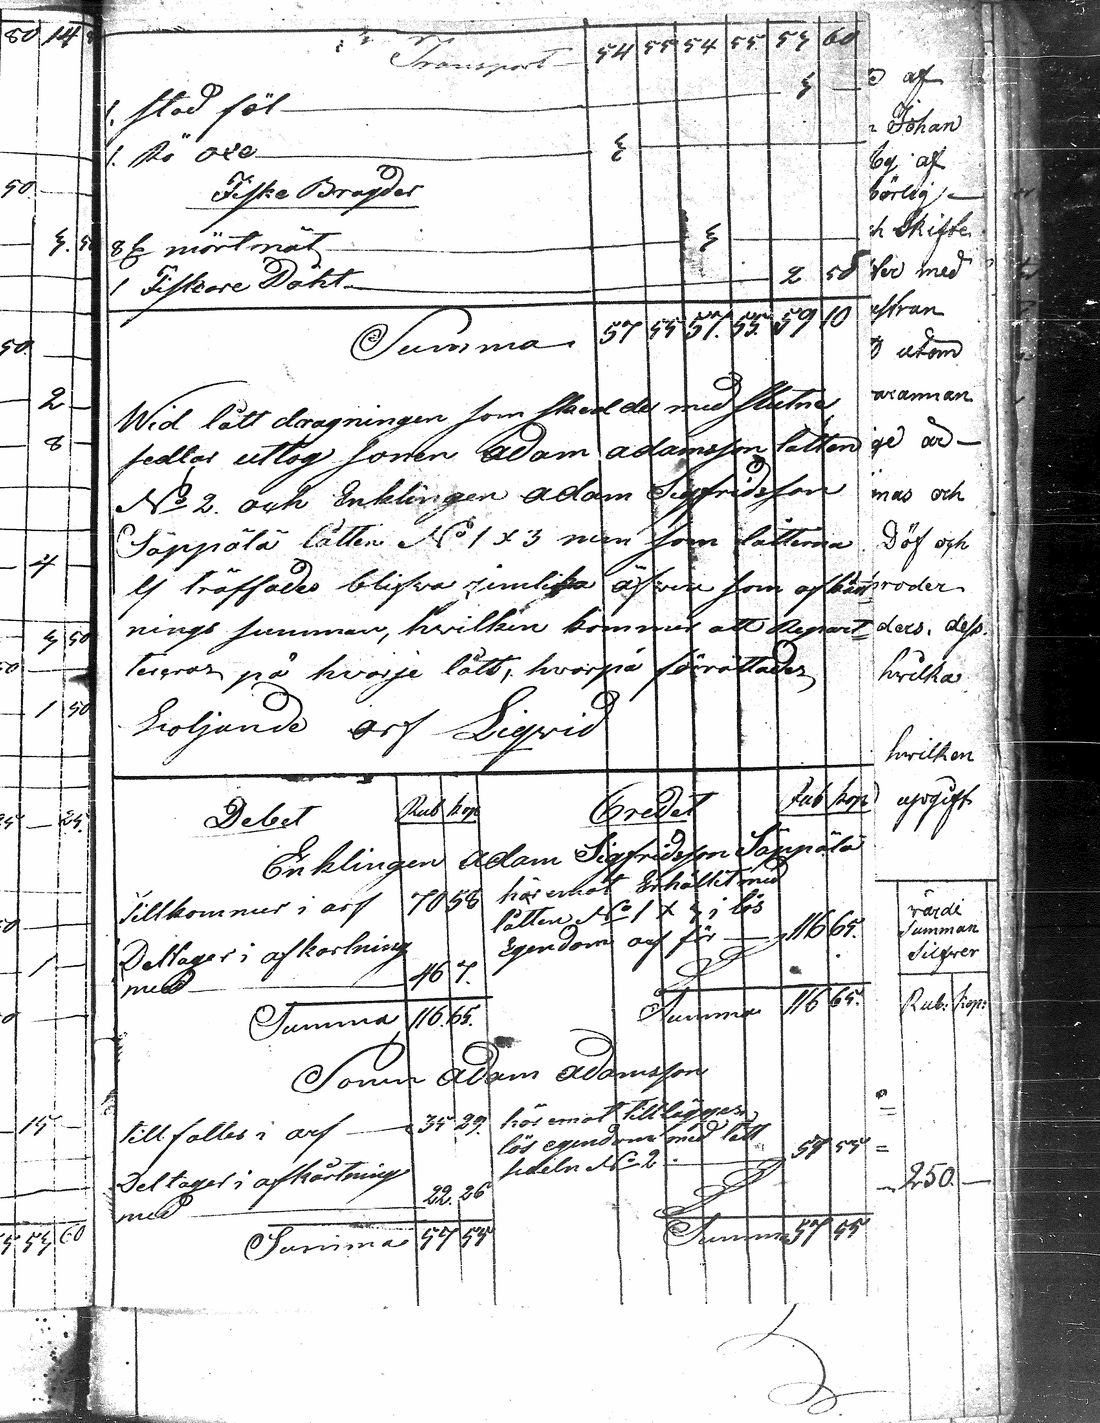 Transport 54 55 54 55 53 60
1. stod föl 3
1. Rö oxe 3
Fiske Bragder
8 £ mörtnät 3
1 Fiskare Båht 2 50
Summa 57 55 57. 55. 59 10
Wid lått dragningen som skedde med slutne
sedlar uttog sonen Adam Adamsson låtten
No 2. och Enklingen Adam Sigfridsson
Säppälä låtten No 1 x 3 men som låtterna
ej träffades blifwa jemlika äfwen som afkårt
nings summan, hwilken kommer att Repart
teseras på hwarje lått, hvarpå förrättades
Följande arf Liqwid
Debet Rub kop Credet Rub kop
Enklingen Adam Sigfridsson Säppälä
Tillkommer i arf 70 58
Deltager i afkortning
med 46 7.
Summa 116. 65.
häremot Erhållit med
låtten No 1 x 3 i lös
Egendom arf för 116 65.
Summa 116 65.
Sonen Adam Adamsson
tillfalles i arf 35 29.
Deltager i afkårtning
med 22. 26
Summa 57 55
häremot tillägges
lös egendom med lått
sedeln No 2 57 55
Summa 57 55
80 14
50.
3. 50
50.
2
8
4
3 50
1 50
25.
1
15
53 60
af
Johan
af
börlig
ch Skifte
ter med
estran
utom
warannan
ge ar
inas och
Döf och
broder
ders. dess.
hwilka
hwilken
upgift
värdi
Summan
Silfwer
Rub: kop:
250.